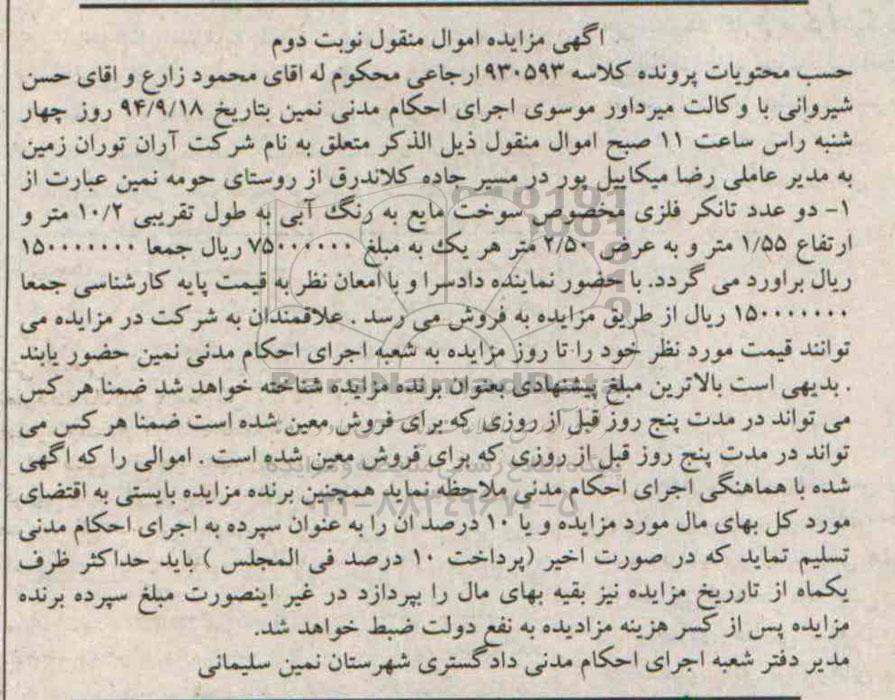 اگهی مزایده اموال منقول نوبت دوم
حسب محتویات پرونده کلاسه ۹۳۰۵۹۳ ارجاعی محکوم له اقای محمود زارع و اقای حسن
شیروانی با وکالت میرداور موسوی اجرای احکام مدنی نمین بتاریخ ۹۴/۹/۱۸ روز چهار
شنبه راس ساعت ۱۱ صبح اموال منقول ذیل الذکر متعلق به نام شرکت آران توران زمین
به مدیر عاملی رضا میکاییل پور در مسیر جاده کلاندرق از روستای حومه نمین عبارت از
۱- دو عدد تانکر فلزی مخصوص سوخت مایع به رنگ آبی به طول تقریبی ۱۰/۲ متر و
ارتفاع ۱/۵۵ متر و به عرض ۲/۵۰ متر هر یک به مبلغ ۷۵۰۰۰۰۰۰ ریال جمعا ۱۵۰۰۰۰۰۰۰
ریال براورد می گردد. با حضور نماینده دادسرا و با امعان نظر به قیمت پایه کارشناسی جمعا
۱۵۰۰۰۰۰۰۰ ریال از طریق مزایده به فروش می رسد . علاقمندان به شرکت در مزایده می
توانند قیمت مورد نظر خود را تا روز مزایده به شعبه اجرای احکام مدنی نمین حضور یابند
. بدیهی است بالاترین مبلغ پیشنهادی بعنوان برنده مزایده شناخته خواهد شد ضمنا هر کس
می تواند در مدت پنج روز قبل از روزی که برای فروش معین شده است ضمنا هر کس می
تواند در مدت پنج روز قبل از روزی که برای فروش معین شده است . اموالی را که اگهی
شده با هماهنگی اجرای احکام مدنی ملاحظه نماید همچنین برنده مزایده بایستی به اقتضای
مورد کل بهای مال مورد مزایده و یا ۱۰ درصد ان را به عنوان سپرده به اجرای احکام مدنی
تسلیم تماید که در صورت اخیر (پرداخت ۱۰ درصد فی المجلس ) باید حداکثر ظرف
یکماه از تارریخ مزایده نیز بقیه بهای مال را بپردازد در غیر اینصورت مبلغ سپرده برنده
مزایده پس از کسر هزینه مزادیده به نفع دولت ضبط خواهد شد.
مدیر دفتر شعبه اجرای احکام مدنی دادگستری شهرستان نمین سلیمانی